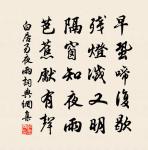 早蛩啼復歇
殘燈滅又明
隔窗知夜雨
芭蕉先有聲
白居易夜雨詞典網集